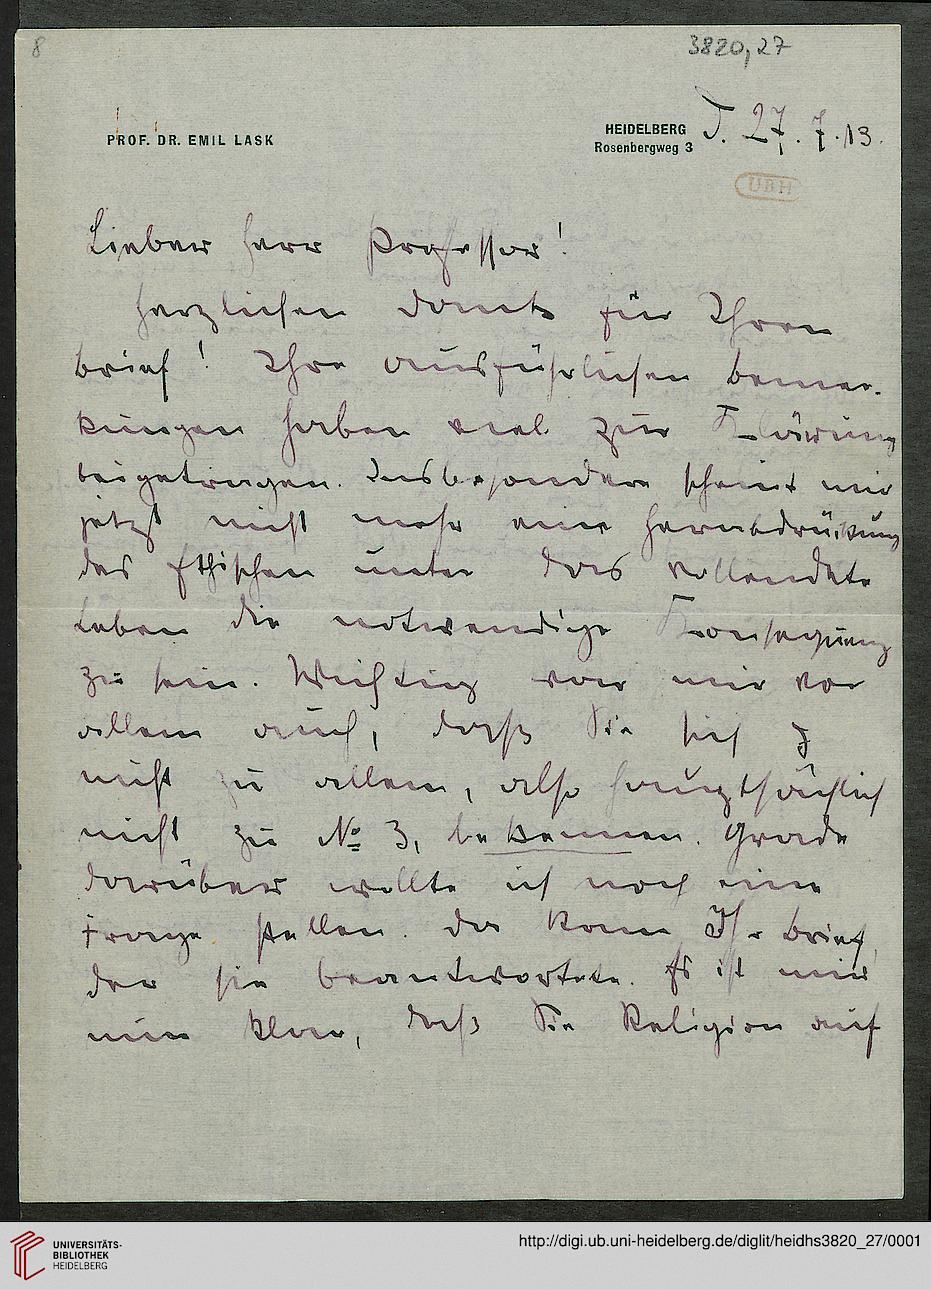 8
3820,27
PROF. DR. EMIL LASK
HEIDELBERG
Rosenbergweg 3
d. 27. 7. 13.
UBH
Lieber Herr Professor!
Herzlichen Dank für Ihren
Brief! Ihre ausführlichen Bemer-
kungen haben viel zur Klärung
beigetragen. Insbesondere scheint mir
jetzt nicht mehr eine Herabdrückung
des Ethischen unter das vollendete
Leben die notwendige Konsequenz
zu sein. Wichtig war mir vor
allem auch, daß Sie sich
nicht zu allem, also hauptsächlich
nicht zu No 3, bekennen. Grade
darüber wollte ich noch eine
Frage stellen. Da kam Ihr Brief,
der sie beantwortete. Es ist mir
nun klar, daß Sie Religion auf
UNIVERSITÄTS-
BIBLIOTHEK
HEIDELBERG
http://digi.ub.uni-heidelberg.de/diglit/heidhs3820_27/0001